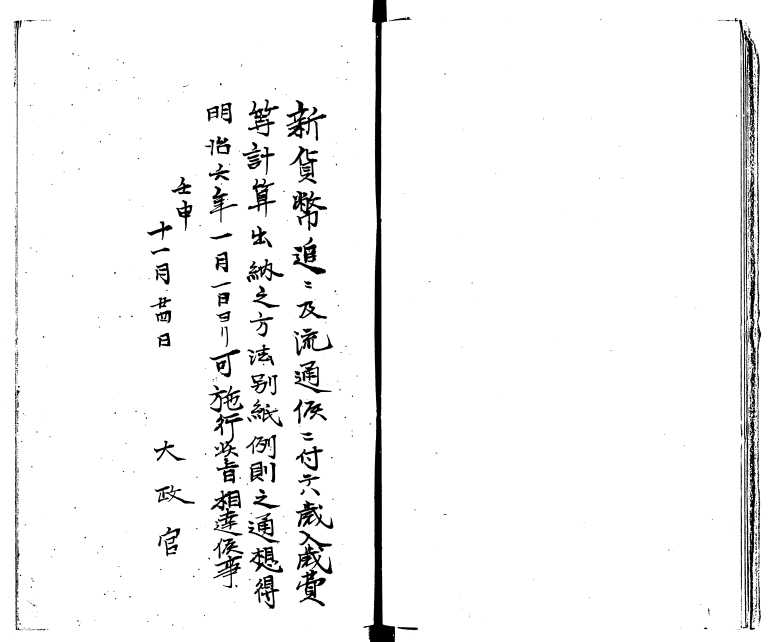 新貨幣追〻及流通候ニ付六歳入歳費
等計算出納之方法別紙例則之通想得
明治六年一月一日ヨリ可施行此旨相達候事
壬申
十一月廿四日
大政官